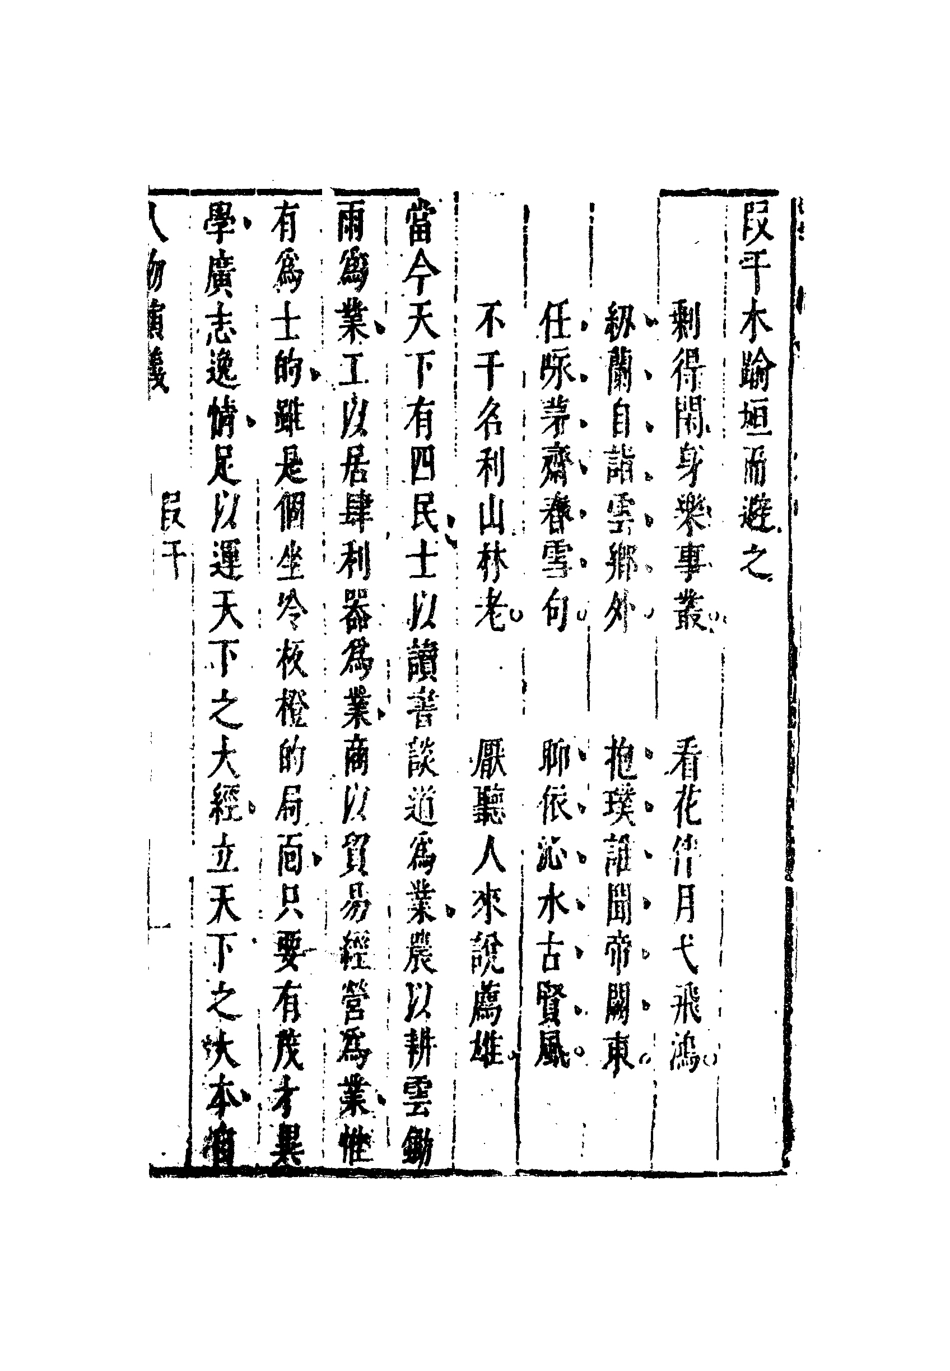 段干木踰垣而避之
剩得閑身樂事叢。　看花伴月弋飛鴻。
紉蘭自詣雲鄉外。　抱璞誰聞帝闕東。
任咏茅齋春雪句。　聊依沁水古賢風。
不干名利山林老。　厭聽人來說薦雄。
當今天下有四民、士以讀書談道爲業、農以耕雲鋤
雨爲業、工以居肆利器爲業、商以貿易經營爲業、惟
有爲士的、雖是個坐冷板橙的局面、只要有茂才異
學、廣志逸情、足以運天下之大經、立天下之大本、有
人物演義　段干